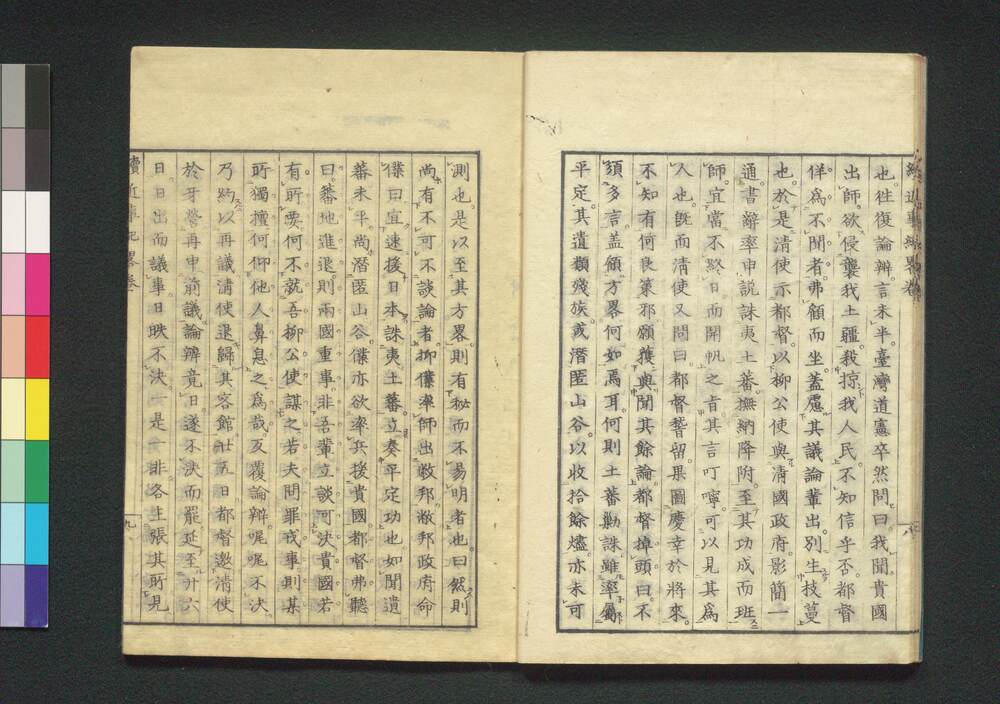 也往復論辨言未半臺灣道憲卒然問曰我聞貴國
出師欲侵襲我土疆殺掠我人民不知信乎否都督
佯爲不聞者弗顧而坐蓋慮其議論輩出別生技蔓
也於是清使示都督以柳公使與清國政府影簡一
通書辭率申説誅夷土蕃撫納降附至其功成而班
師宜當不終日而開帆之旨其言叮嚀可以見其爲
人也既而清使又問曰都督誓留果圖慶幸於將來
不知有何良策邪願獲與聞其餘論都督掉頭曰不
須多言蓋顧方畧何如焉耳何則土蕃勦誅雖率屬
平定其遺類殘族或潛匿山谷以收拾餘燼亦未可
測也是以至其方畧則有秘而不易明者也曰然則
尚有不可不談論者抑僕率師出敝邦敝邦政府命
僕曰宜速援日本誅夷土蕃立奏平定功也如聞遺
蕃未平尚潛匿山谷僕亦欲率兵援貴國都督弗聽
曰蕃地進退則兩國重事非吾輩立談可決貴國若
有所要何不就吾柳公使謀之若夫問罪戎事則某
所獨擅何仰他人鼻息之爲哉反覆論辨呢呢不決
乃約以再議清使退歸其客館廿五日都督邀清使
於牙營再申前議論辨竟日遂不決而罷延至廿六
日日出而議事日昳不決一是一非各主張其所見
續近事紀畧卷
九